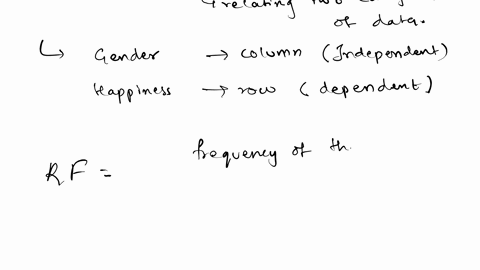 relating two
of data.
↳ Gender → column (Independent)
Happiness → row (dependent)
RF = frequency of th